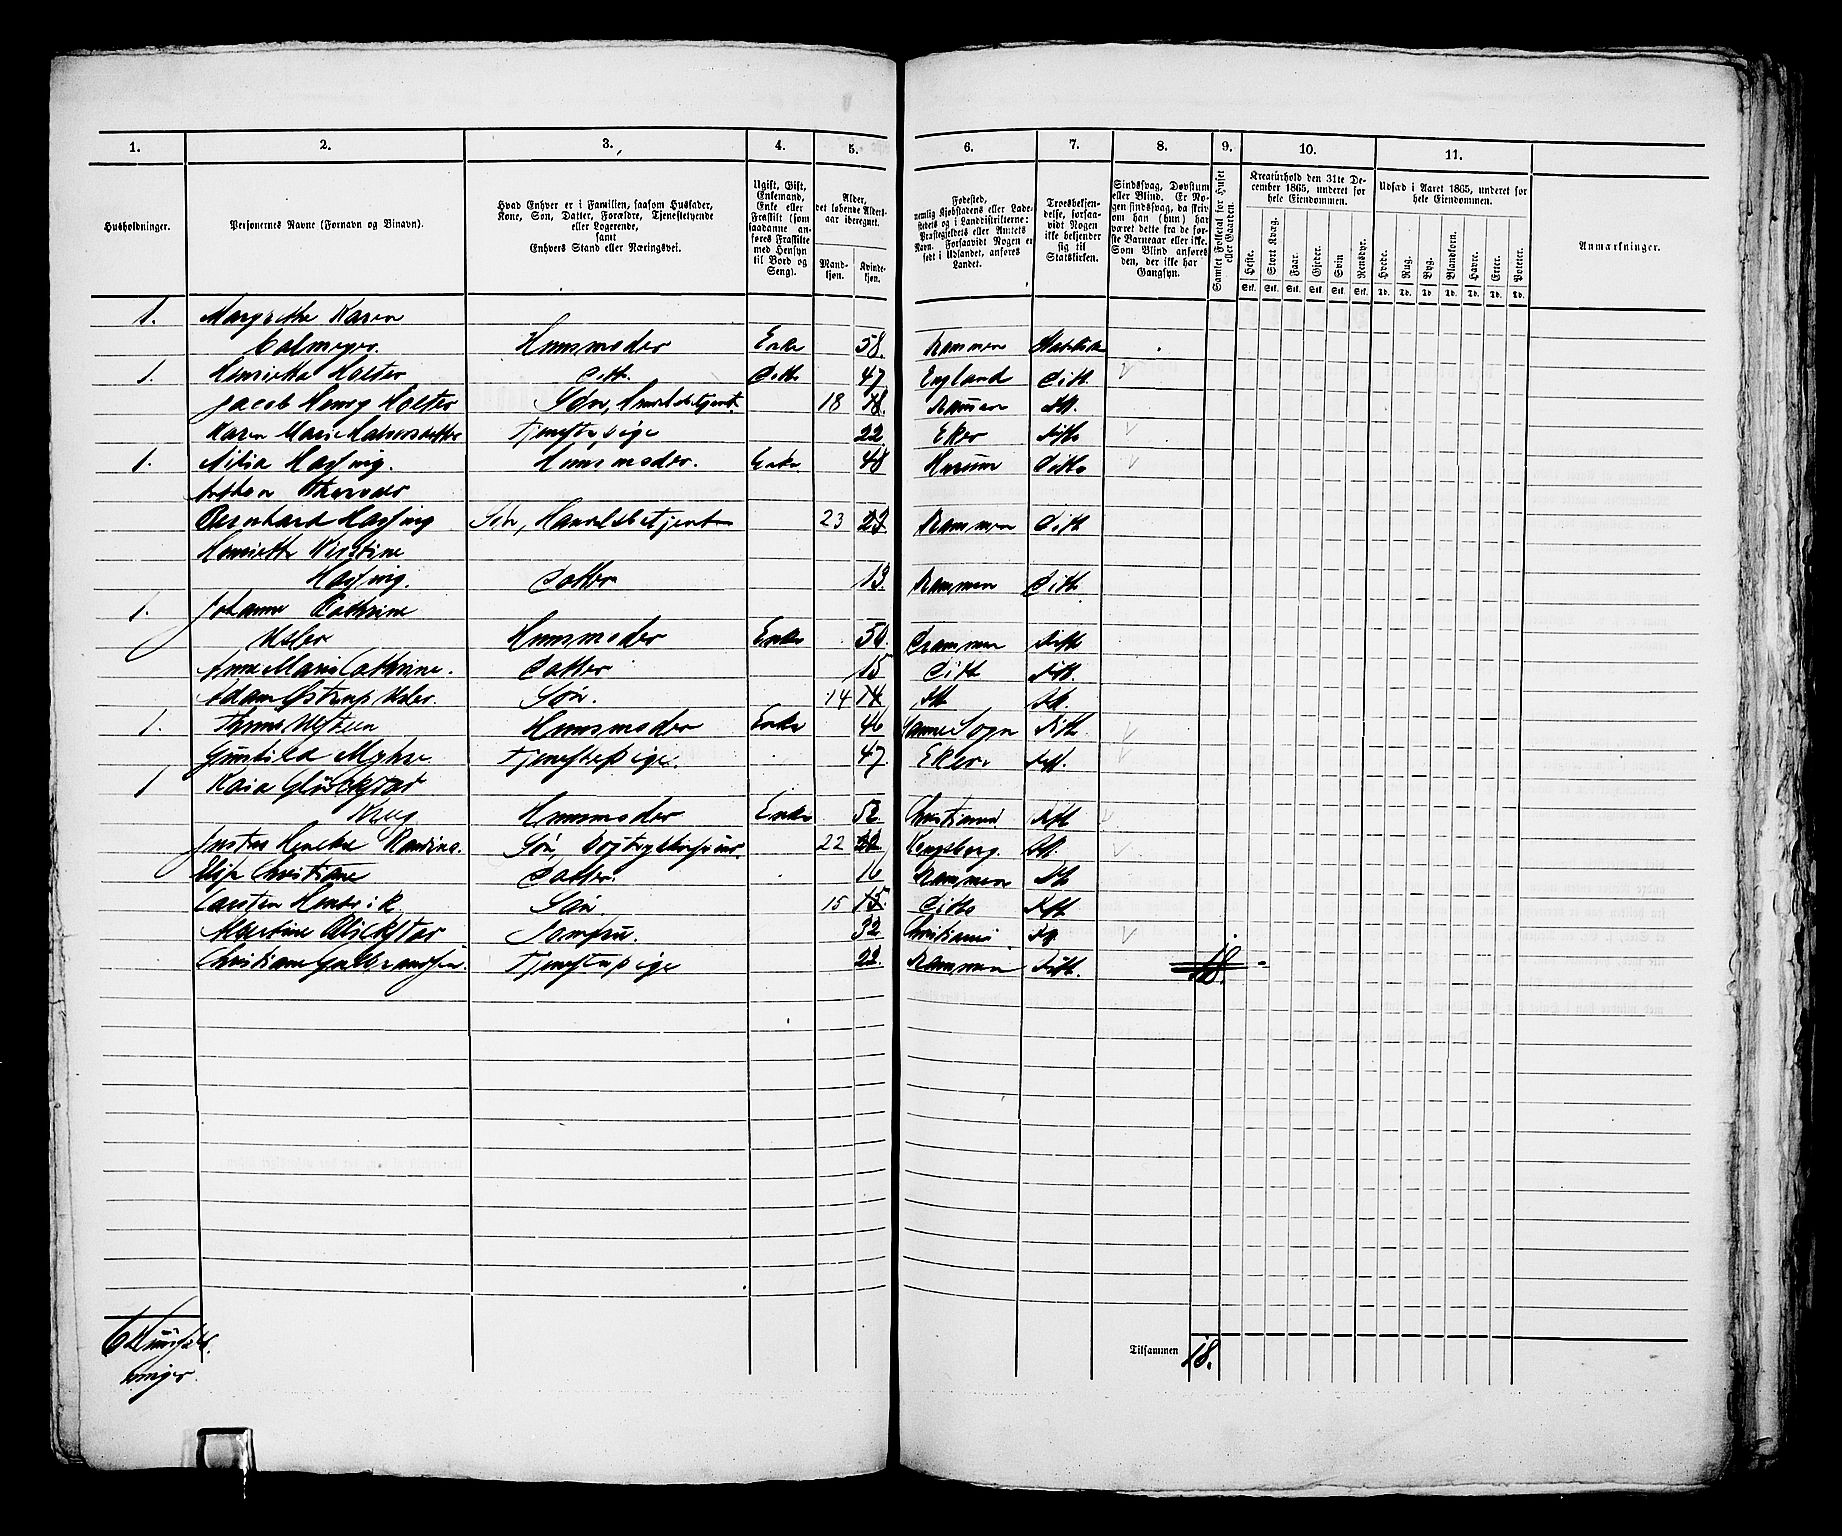 1. 2. 3. 4. 5. 6. 7. 8. 9. 10. 11.
Husholdninger.
Personernes Navne (Fornavn og Binavn).
Hvad Enhver er i Familien, saasom Husfader, Kone, Søn, Datter, Forældre, Tjenestetyende eller Logerende, samt Enhvers Stand eller Næringsvei.
Ugift, Gift, Enkemand, Enke eller Fraskilt (som saadanne anføres Fraskilte med Hensyn til Bord og Seng).
Alder, det løbende Alders-aar iberegnet.
Mand-kjøn. Kvinde-kjøn.
Fødested, nemlig Kjøbstadens eller Ladestedets og i Landdistrikterne: Præstegjeldets eller Amtets Navn. Forsaavidt Nogen er født i Udlandet, anføres Landet.
Troesbekjendelse, forsaavidt Nogen ikke bekjender sig til Statskirken.
Sindssvag, Døvstum eller Blind. Er Nogen sindssvag, da skrives om han (hun) har været dette fra de første Barneaar eller ikke. Som Blind anføres den, der ikke har Gangsyn.
Samlet Folketal for Huset eller Gaarden.
Kreaturhold den 31te December 1865, underet for hele Eiendommen.
Heste. Stort Kvæg. Faar. Gjeder. Svin Rensdyr.
Stk. Stk. Stk. Stk. Stk. Stk.
Udsæd i Aaret 1865, underet for hele Eiendommen.
Hvede. Rug. Byg. Blandkorn. Havre. Erter. Poteter.
Td. Td. Td. Td. Td. Td. Td.
Anmærkninger.
1. Margrethe Karen
Colmeyer. Huusmoder Enke 58. Drammen
1. Henriette Holter Ditto Ditto 47 England Ditto
Jacob Henry Holter Søn, Handelsbetjent. 18 18. Drammen Ditto
Karen Marie Halvorsdatter Tjenestepige 22 Eker Ditto
1. Huusmoder. Enke 48 Ditto
Theodor
Bernhard Søn, Handelsbetjent 23 23 Drammen Ditto
Henriette Kirstine
Datter 13. Drammen Ditto
1. Johanne Cathrine
Huusmoder Enke 50. Drammen Ditto
Anne Marie Cathrine. Datter 15 Ditto Ditto
Adam Søn. 14 14 Ditto Ditto
1. Huusmoder Enke 46 Sogn Ditto
Gunhild Tjenestepige. 47. Eker. Ditto
1 Kaia Glückstad
Krug Huusmoder Enke 52 Christiania Ditto
Justus Søn, 22 22 Kongsberg. Ditto
Christiane Datter. 16 Drammen Ditto
Carsten Hendrik Søn 15 15. Ditto Ditto
Martine Glückstad Jomfru. 32 Christiania Ditto
Christiane Gulbrandsen Tjenestepige 22. Drammen Ditto. 18.
6 Huushold-
ninger.
Tilsammen 18.